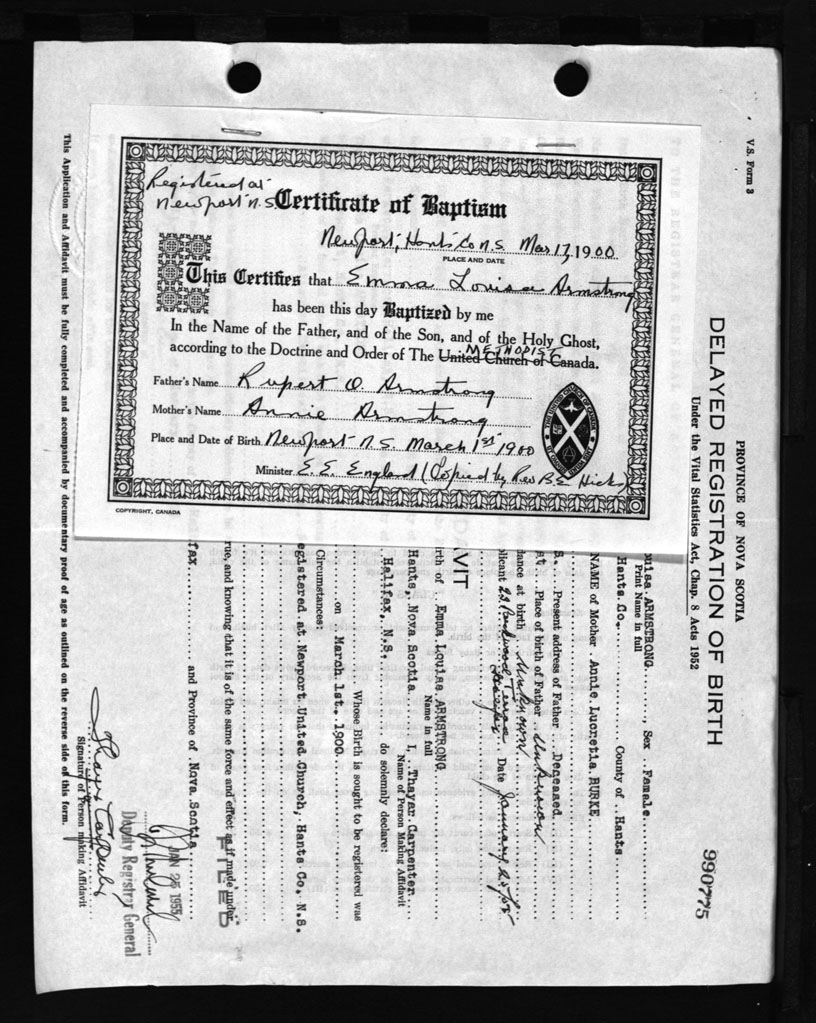 Registered at
Newport N.S.
Certificate of Baptism
Newport, Hants Co N.S. Mar 17, 1900
PLACE AND DATE
This Certifies that Emma Louisa Armstrong
has been this day Baptized by me
In the Name of the Father, and of the Son, and of the Holy Ghost,
METHODIST
according to the Doctrine and Order of The United Church of Canada.
Father's Name Rupert O. Armstrong
Mother's Name Annie Armstrong
Place and Date of Birth Newport N.S. March 1st 1900
Minister E. E. England (Copied by Rev B.E. Hicks)
COPYRIGHT, CANADA
V.S. Form 3
PROVINCE OF NOVA SCOTIA
DELAYED REGISTRATION OF BIRTH
Under the Vital Statistics Act, Chap. 8 Acts 1952
990775
ouisa ARMSTRONG, Sex Female
Print Name in full
Hants Co. County of Hants
NAME of Mother Annie Lucretia BURKE
S. Present address of Father Deceased
st Place of birth of Father Unknown
dance at birth Unknown
plicant 23 Terrace
Halifax Date January 25/55
AVIT
rth of Emma Louisa ARMSTRONG
Name in full
Hants, Nova Scotia I, Thayar Carpenter
Name of Person Making Affidavit
Halifax, N.S. do solemnly declare:
Whose Birth is sought to be registered was
on March 1st. 1900
Circumstances:
egistered at Newport United Church, Hants Co. N.S.
rue, and knowing that it is of the same force and effect as if made under
FILED
fax and Province of Nova Scotia
JAN 25 1955
Deputy Registrar General
Thayar Carpenter
Signature of Person making Affidavit
This Application and Affidavit must be fully completed and accompanied by documentary proof of age as outlined on the reverse side of this form.